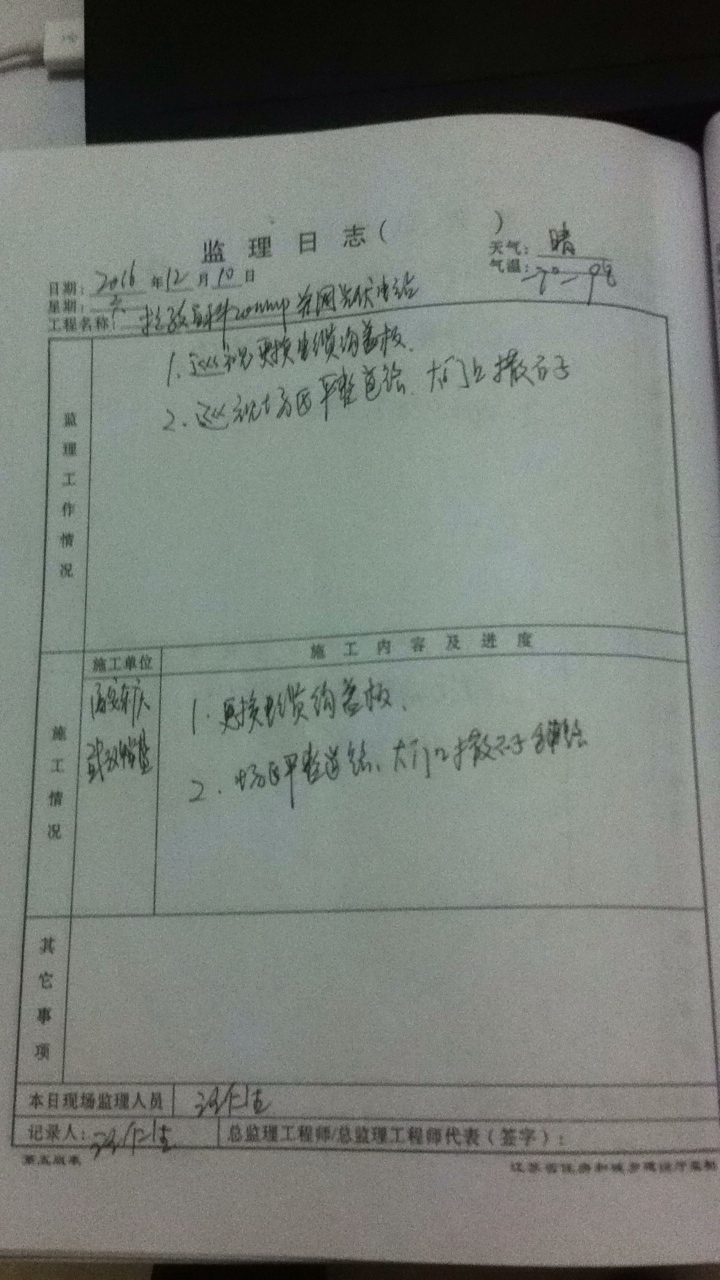 监理日志( )
天气: 晴
日期: 2016 年 12 月 10 日
气温: -7°-9℃
星期: 六
工程名称: 20MWp 并网光伏电站
监理工作情况
1. 巡视更换电缆沟盖板.
2. 巡视场区平整道路. 大门口撒石子
施工单位
施工内容及进度
施工情况
1. 更换电缆沟盖板.
2. 场区平整道路、大门口撒石子
其它事项
本日现场监理人员
记录人:
总监理工程师/总监理工程师代表(签字):
第五版表
江苏省住房和城乡建设厅监制